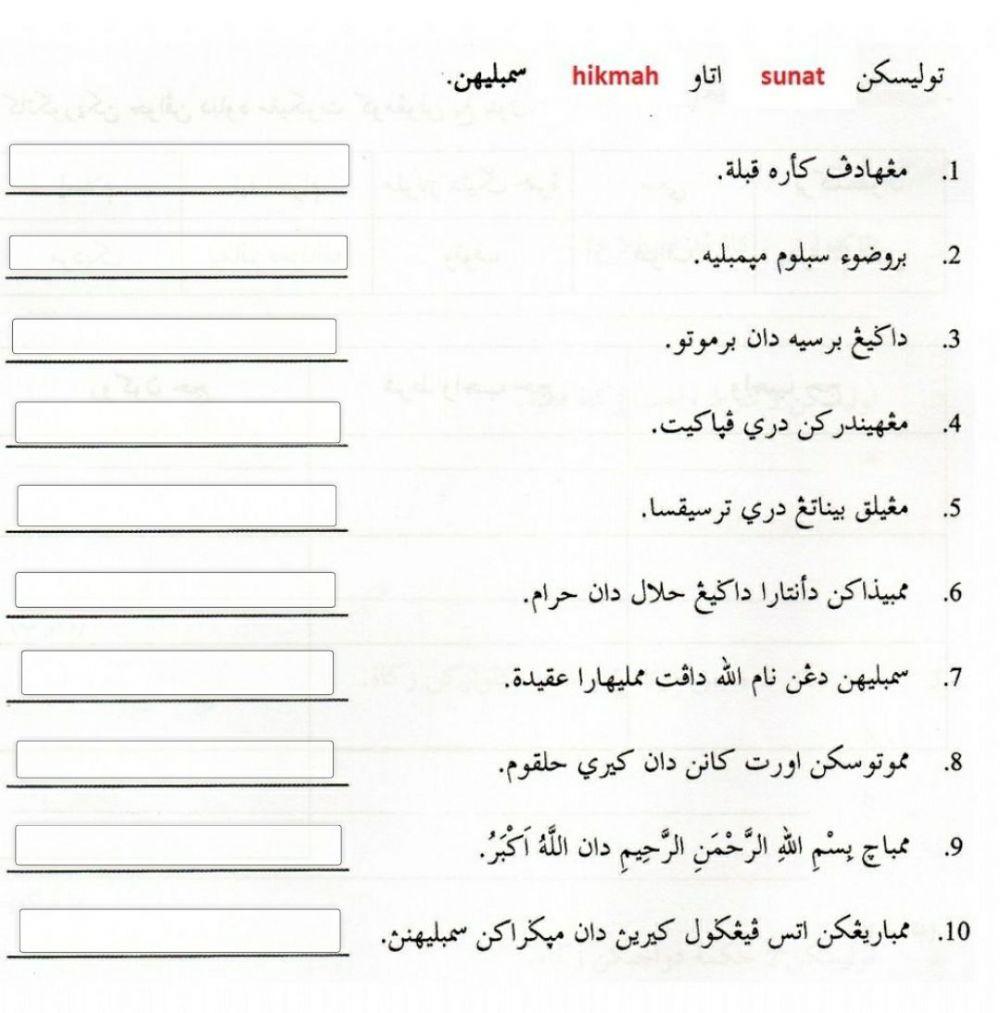 توليسكن sunat اتاو hikmah سمبليهن.
1. مڠهادڤ كأره قبلة.
2. بروضوء سبلوم ميمبليه.
3. داݢيڠ برسيه دان برموتو.
4. مڠهيندركن دري ڤپاكيت.
5. مڠيلق بيناتڠ دري ترسيقسا.
6. ممبيذاكن دأنتارا داݢيڠ حلال دان حرام.
7. سمبليهن دڠن نام الله داڤت ممليهارا عقيدة.
8. مموتوسكن اورت كانن دان كيري حلقوم.
9. ممباچ بِسْمِ اللهِ الرَّحْمَنِ الرَّحِيمِ دان اللَّهُ اَكْبَرُ.
10. ممباريڠكن اتس ڤيڠݢول كيرين دان مپݢراكن سمبليهنڽ.